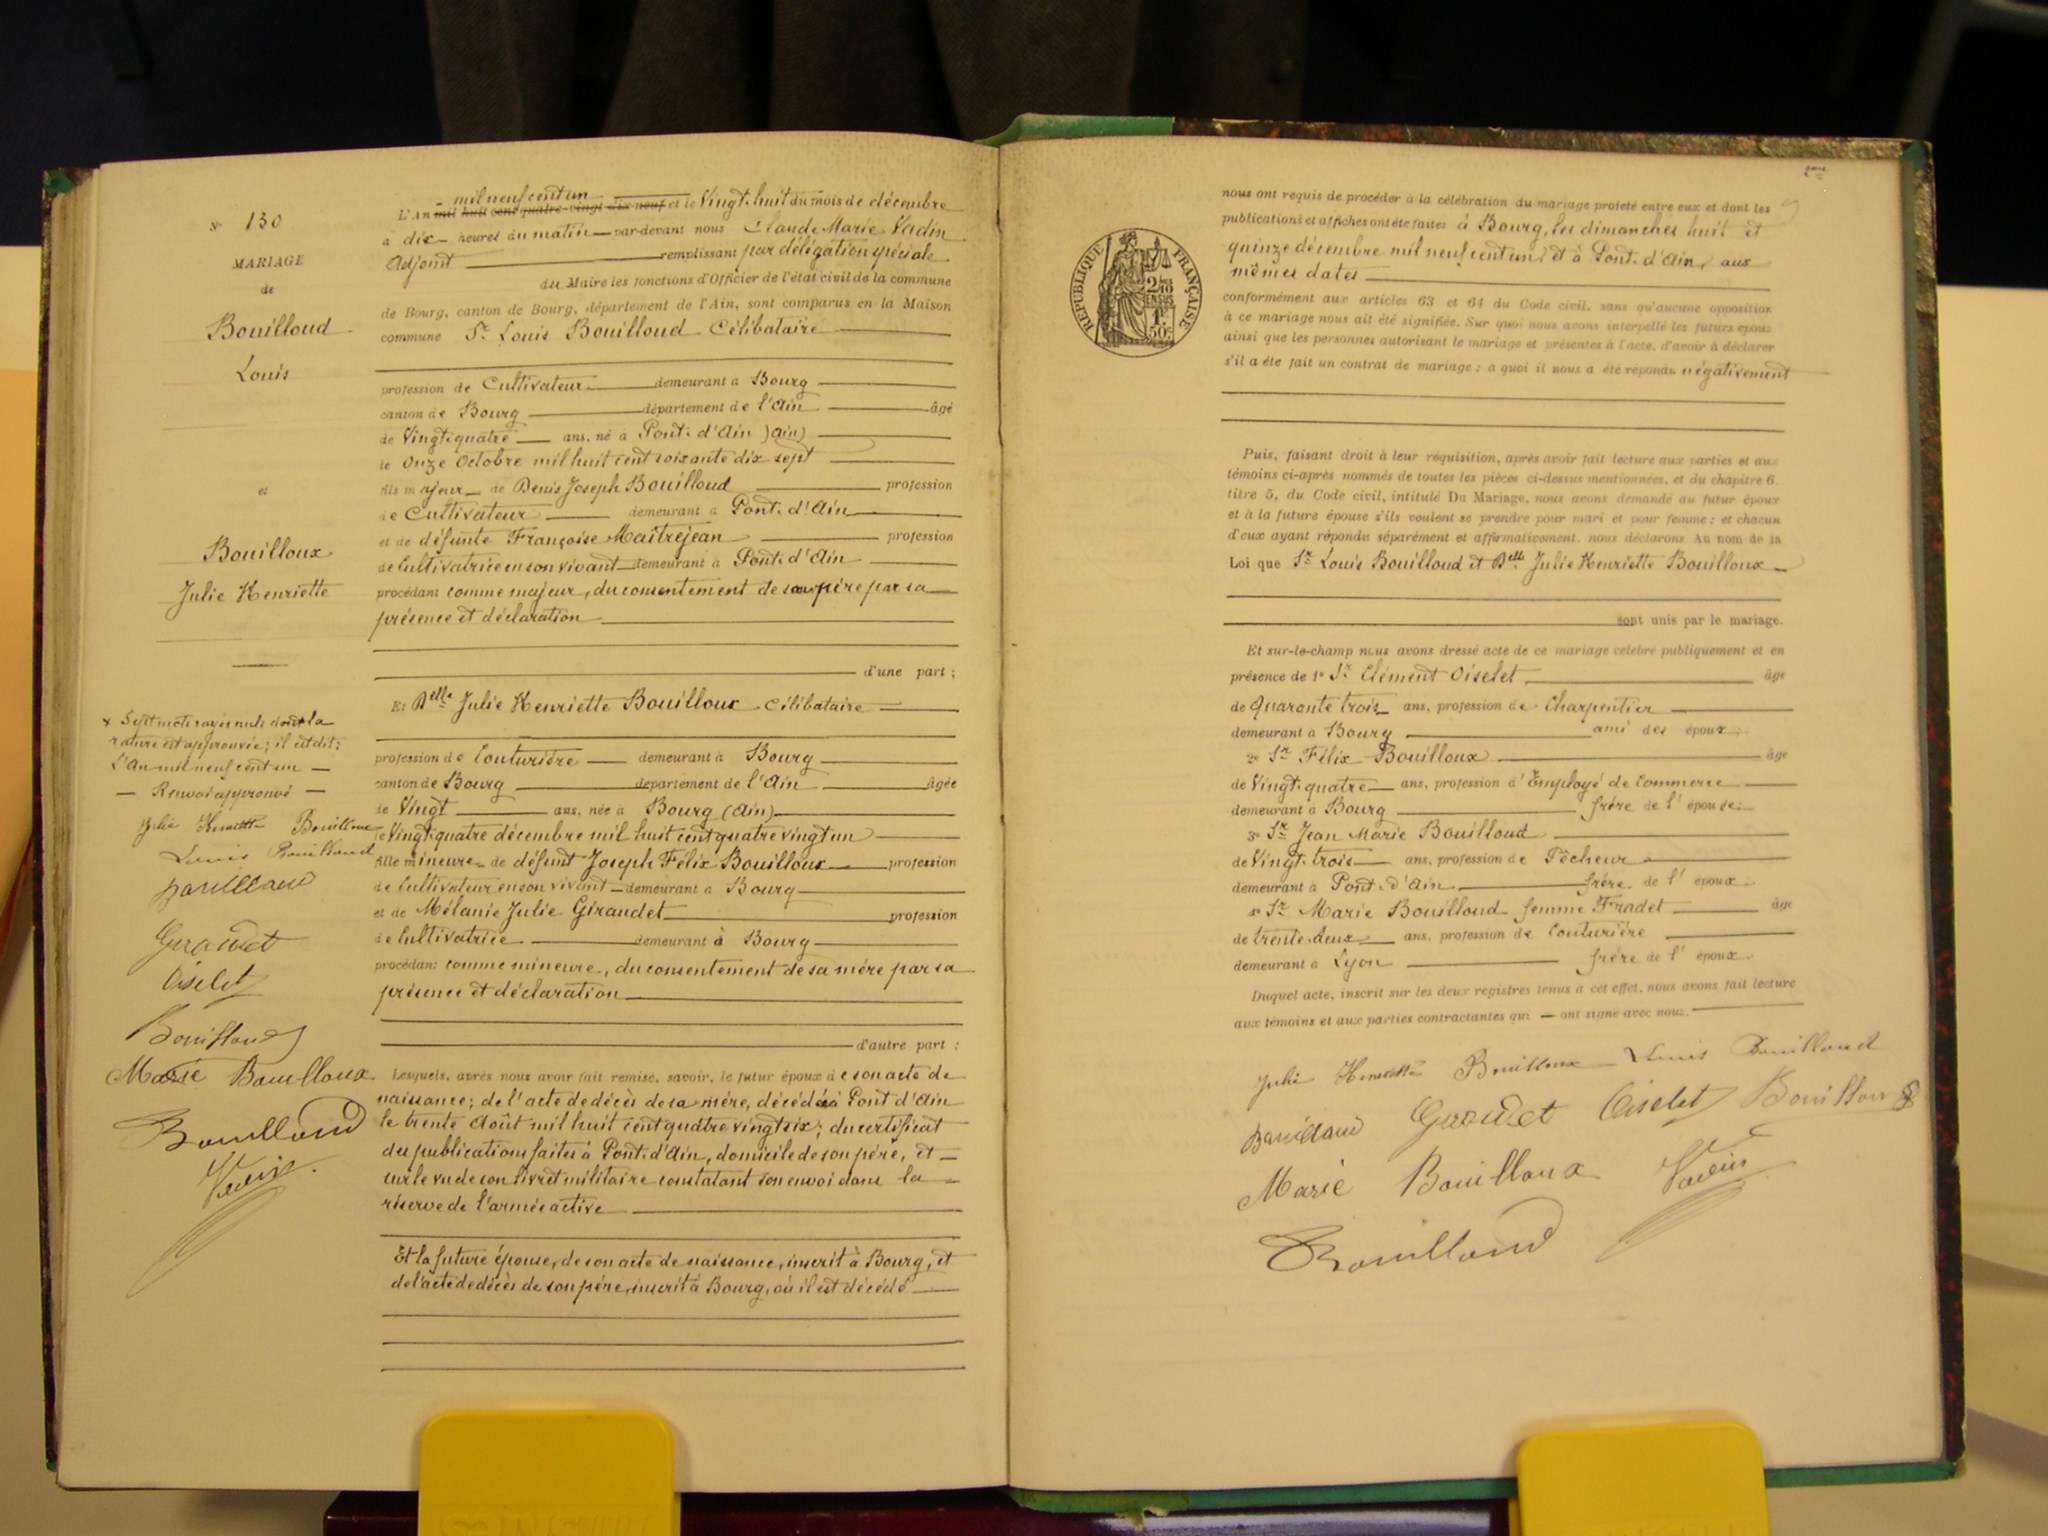 N° 130
MARIAGE
de
Bouilloud
Louis
et
Bouilloux
Julie Henriette
x Sept mots rayés nuls dont la
rature est approuvée ; il est dit :
L'An mil neuf cent un —
— Renvoi approuvé —
Julie Henriette Bouilloux
Louis Bouilloud
Bouilloud
Giraudet
Oiselet
Bouilloux
Marie Bouilloux
Bouilloud
Verdin
mil neuf cent un
L'An mil huit cent quatre-vingt-dix-neuf et le Vingt-huit du mois de décembre
à dix heures du matin par-devant nous Claude Marie Verdin
Adjoint remplissant par délégation spéciale
du Maire les fonctions d'Officier de l'état civil de la commune
de Bourg, canton de Bourg, département de l'Ain, sont comparus en la Maison
commune Sr Louis Bouilloud Célibataire
profession de Cultivateur demeurant à Bourg
canton de Bourg département de l'Ain âgé
de Vingt-quatre ans, né à Pont-d'Ain (Ain)
le Onze Octobre mil huit cent soixante dix sept
fils majeur de Denis Joseph Bouilloud profession
de Cultivateur demeurant à Pont-d'Ain
et de défunte Françoise Maitrejean profession
de Cultivatrice en son vivant demeurant à Pont-d'Ain
procédant comme majeur, du consentement de son père par sa
présence et déclaration
d'une part ;
Et Delle Julie Henriette Bouilloux Célibataire
profession de Couturière demeurant à Bourg
canton de Bourg département de l'Ain âgée
de Vingt ans, née à Bourg (Ain)
le Vingt-quatre décembre mil huit cent quatre vingt un
fille mineure de défunt Joseph Félix Bouilloux profession
de Cultivateur en son vivant demeurant à Bourg
et de Mélanie Julie Giraudet profession
de Cultivatrice demeurant à Bourg
procédant comme mineure, du consentement de sa mère par sa
présence et déclaration
d'autre part ;
Lesquels, après nous avoir fait remise, savoir, le futur époux de son acte de
naissance ; de l'acte de décès de sa mère, décédée à Pont d'Ain
le trente Août mil huit cent quatre vingt six ; du certificat
des publications faites à Pont-d'Ain, domicile de son père, et —
sur le vu de son livret militaire constatant son envoi dans la
réserve de l'armée active
Et la future épouse, de son acte de naissance, inscrit à Bourg, et
de l'acte de décès de son père, inscrit à Bourg, où il est décédé
RÉPUBLIQUE FRANÇAISE
2/10 EN SUS
1F 50c
nous ont requis de procéder à la célébration du mariage projeté entre eux et dont les
publications et affiches ont été faites à Bourg, les dimanches huit et
quinze décembre mil neuf cent un, et à Pont-d'Ain, aux
mêmes dates
conformément aux articles 63 et 64 du Code civil, sans qu'aucune opposition
à ce mariage nous ait été signifiée. Sur quoi nous avons interpellé les futurs époux
ainsi que les personnes autorisant le mariage et présentes à l'acte, d'avoir à déclarer
s'il a été fait un contrat de mariage ; à quoi il nous a été répondu négativement
Puis, faisant droit à leur réquisition, après avoir fait lecture aux parties et aux
témoins ci-après nommés de toutes les pièces ci-dessus mentionnées, et du chapitre 6,
titre 5, du Code civil, intitulé Du Mariage, nous avons demandé au futur époux
et à la future épouse s'ils veulent se prendre pour mari et pour femme ; et chacun
d'eux ayant répondu séparément et affirmativement, nous déclarons Au nom de la
Loi que Sr Louis Bouilloud et Delle Julie Henriette Bouilloux
sont unis par le mariage.
Et sur-le-champ nous avons dressé acte de ce mariage célébré publiquement et en
présence de 1° Sr Clément Oiselet âgé
de Quarante trois ans, profession de Charpentier
demeurant à Bourg ami des époux ;
2° Sr Félix Bouilloux âgé
de Vingt-quatre ans, profession d'Employé de Commerce
demeurant à Bourg frère de l'épouse ;
3° Sr Jean Marie Bouilloud
de Vingt-trois ans, profession de Pêcheur
demeurant à Pont-d'Ain frère de l'époux
4° Sr Marie Bouilloud femme Fradet âgé
de trente-deux ans, profession de Couturière
demeurant à Lyon frère de l'époux
Duquel acte, inscrit sur les deux registres tenus à cet effet, nous avons fait lecture
aux témoins et aux parties contractantes qui — ont signé avec nous.
Julie Henriette Bouilloux Louis Bouilloud
Bouilloud Giraudet Oiselet Bouilloux
Marie Bouilloux Verdin
Bouilloud